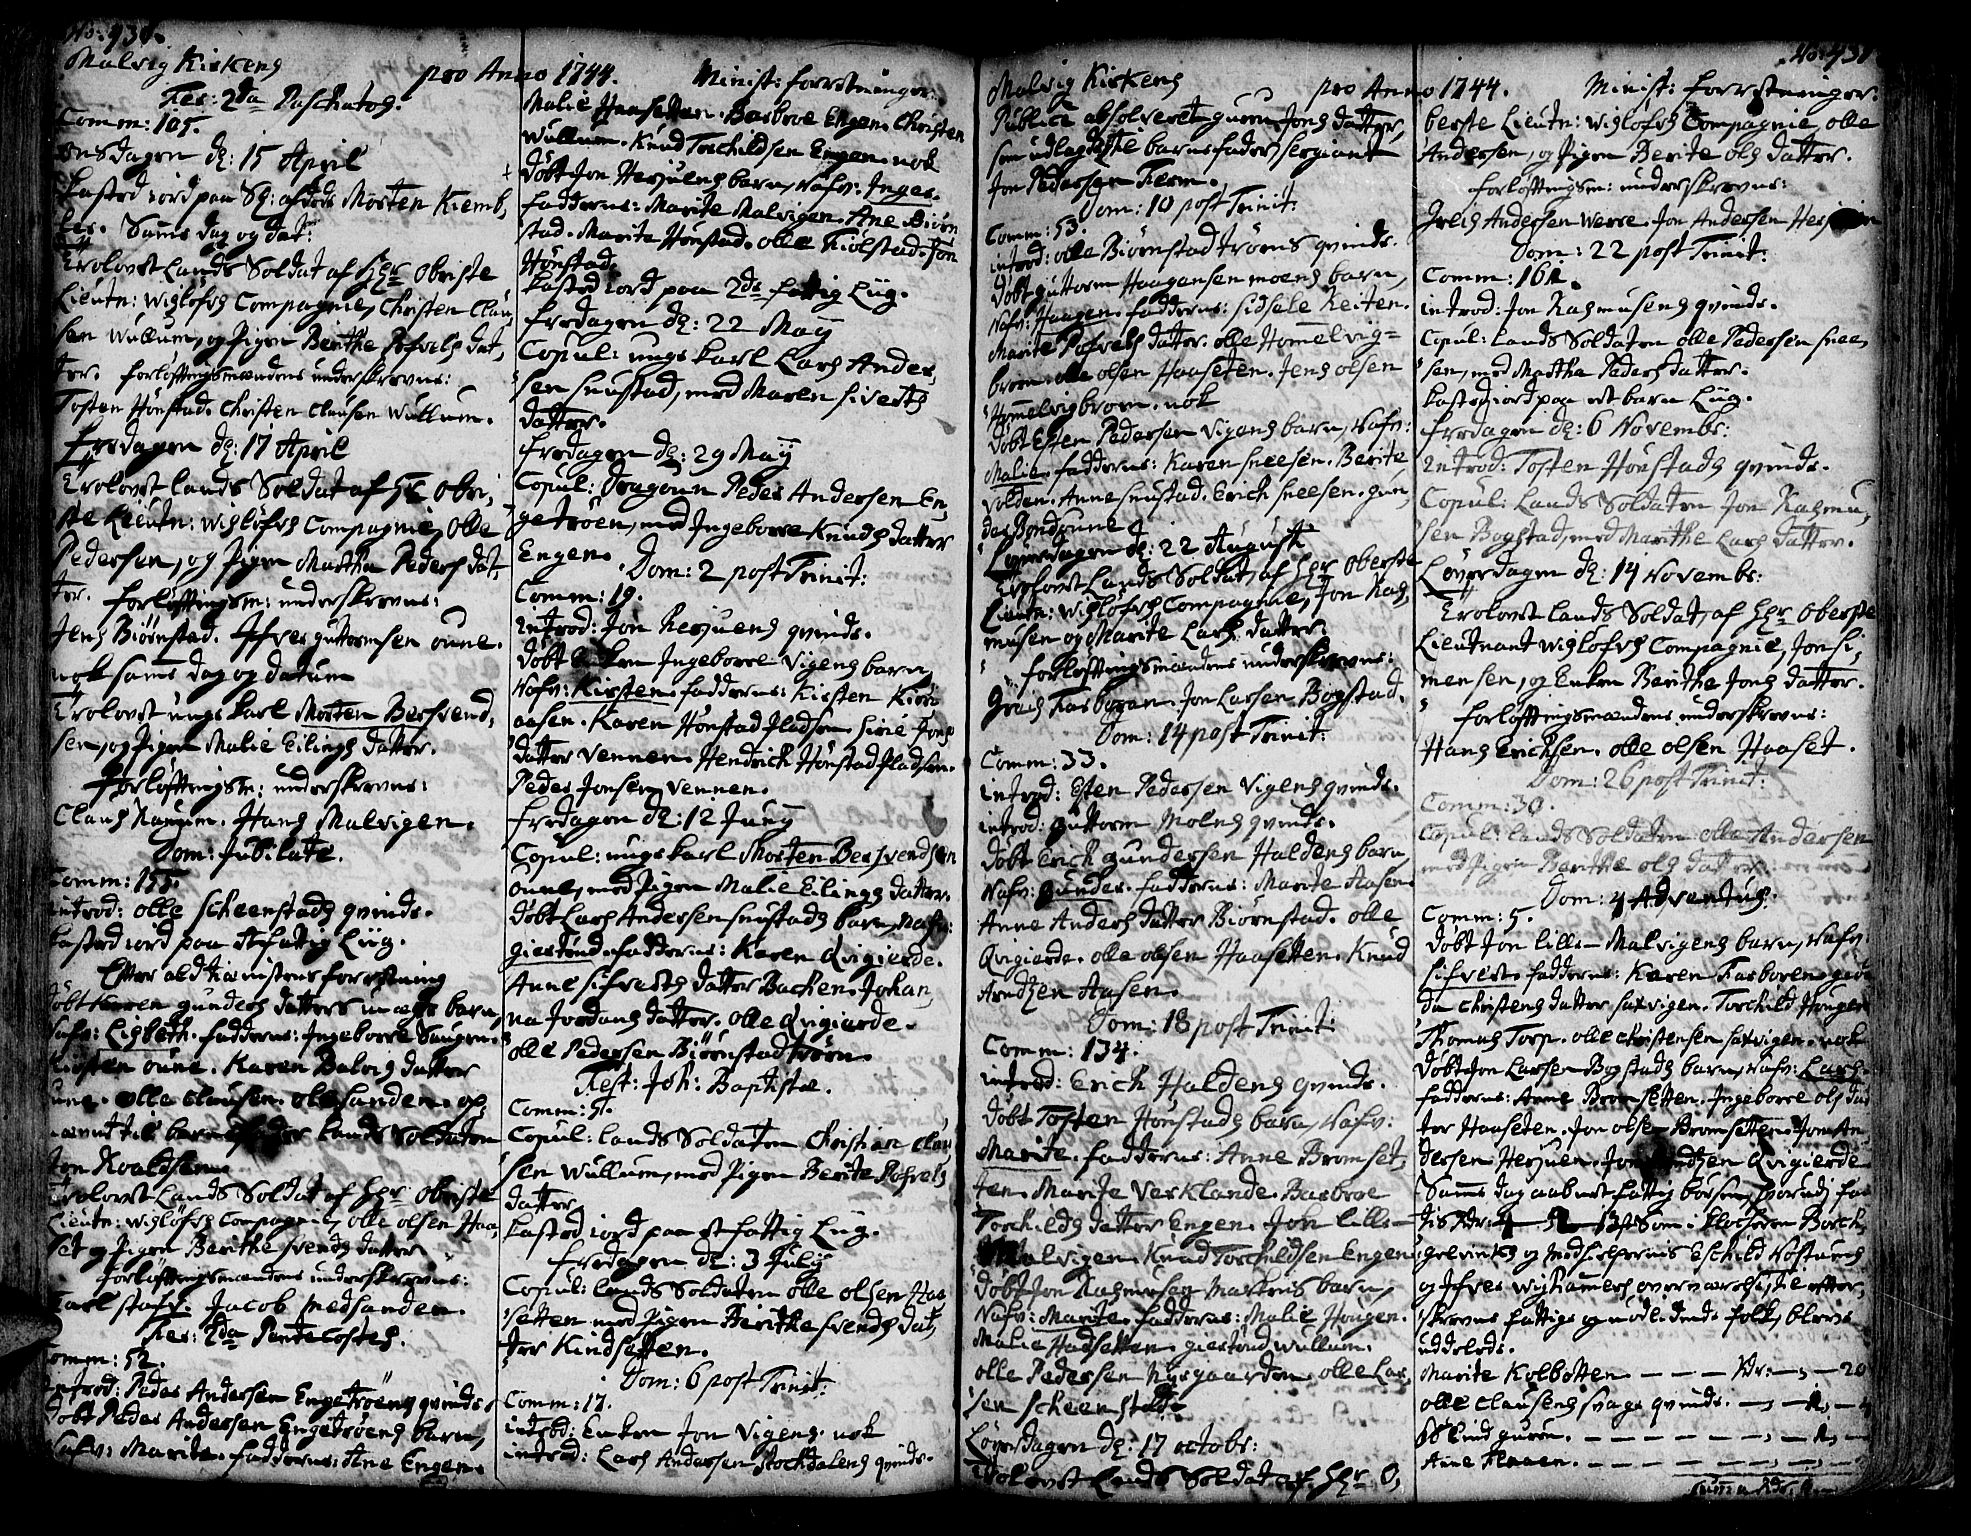 No: 430.
Malvig Kirkens pro Anno 1744. Minist: forretninger.
Fer: 2da Paschatos.
Comm: 105.
onsdagen dn: 15 April
kasted iord paa Sl: afdøde Morten Kiemb,
ler. Samme dag og dat:
Trolovet Lands Soldat af Hr obriste
Lieutn: Wigløfs Compagnie, Christen Clau,
sen Wullum, og Pigen Berithe Pofvels dat,
ter. forløftningsmændene underskrevne:
Tosten Hønstad. Christen Clausen Wullum.
fredagen dn: 17 April
Trolovet Lands Soldat af Hr obri,
ste Lieutn: Wigløfs Compagnie, olle
Pedersen, og Pigen Martha Peders dat,
ter. forløftningsm: underskrevne:
Jens Biørnstad. Ifver guttormsen oune.
nok samme dag og datum
Trolovet unge karl Morten Bersvend,
sen, og Pigen Malie Eilings datter.
forløftningsm: underskrevne:
Claus Haugum. Hans Malvigen.
Dom: Jubilate.
Comm: 155.
introd: olle Scheenstads qvinde.
kasted iord paa et fattig Liig.
Efter ald tieneistens forretning
døbt Karen gunders datters uægte barn,
Nafv: Lisbeth. fadderne: Ingeborre Saugen.
Kirsten oune. Karen Balvigs datter
oune. olle Clausen. ole Sanden. op,
nævnt til barnefader Lands Soldaten
Jon Roaldsen.
Trolovet Lands Soldat af Hr oberste
Lieutn: Wigløfs Compagnie, olle olsen Haa,
set og Pigen Berithe Svends datter
forløftningsmændene underskrevne:
Carl stafs. Jacob Medsanden.
Fer: 2da Pentecostes.
Comm: 52.
introd: Peder Andersen Engetrøens qvinde.
døbt Peder Andersen Engetrøens barn,
Nafv: Marite. fadderne: Ane Engen.
Malie Haasetten. Barbroe Engen. Christen
Wullum. Knud Torchildsen Engen. nok
døbt Jon Herjuens barn, Nafv: Inger.
fadderne: Marite Malvigen. Ane Biørn
stad. Marite Hønstad. olle Kiølstad. Jon
Hønstad.
kasted iord paa 2de fattig Liig.
fredagen dn: 22 May
Copul: unge karl Lars Ander,
sen Snustad, med Maren Siverts
datter.
fredagen dn: 29 May
Copul: Dragoun Peder Andersen En,
getrøen, med Ingeborre Knuds datter
Engen.
Dom: 2 post Trinit:
Comm: 19.
introd: Jon Herjuens qvinde.
døbt Enken Ingeborre Vigens barn,
Nafv: Kirsten. fadderne: Kirsten Kier
aasen. Karen Hønstad Pladsen. Sirie Jons
datter Vennen. Hendrich Hønstad Pladsen.
Peder Jonsen Vennen.
fredagen dn: 12 Juny
Copul: unge karl Morten Bersvendsen
oune, med Pigen Malie Eilings datter.
døbt Lars Andersen Snustads barn, Nafv:
giertrud. fadderne: Karen Qvigierde.
Anne Sifverts datter Bachen. Johan,
na Jordans datter. olle Qvigierde.
olle Pedersen Biørnstadtrøen.
Fest: Joh: Baptistæ.
Comm: 5.
Copul: Lands Soldaten Christian Clau
sen Wullum, med Pigen Berite Pofvels
datter.
kasted iord paa et fattig Liig.
fredagen dn: 3 July
Copul: Lands Soldaten olle olsen Haa
setten med Pigen Berithe Svends dat,
ter Kindsetten.
Dom: 6 post Trinit:
Comm: 17.
introd: Enken Jon Vigens. nok
introd: Lars Andersen Stochdalens qvinde.
No: 431
Malvig Kirkens pro Anno 1744. Minist: forretninger.
Publice absolveret guren Jons datter,
som udlagde til barnefader sergiant
Jon Pedersen Ferm.
Dom: 10 post Trinit:
Comm: 53.
introd: olle Biørnstadtrøens qvinde.
døbt guttorm Haagensen moens barn,
Nafv: Haagen. fadderne: Sidsele Reiten.
Marite Pofvels datter. olle Homelvig=
broen. olle olsen Haaseten. Jens olsen
Hommelvigbroen. nok
døbt Esten Pedersen Vigens barn, Nafv:
Malie. fadderne: Karen Sneesen. Berite
Volden. Anne Snustad. Erich Sneesen. gun,
der Bondoune.
Løverdagen dn: 22 August
Trolovet Lands Soldat, af Hr oberste
Lieutn: Wigløfs Compagnie, Jon Ras,
musen og Marite Lars datter.
forløftningsmændene underskrevne:
Greis Farboren. Jon Larsen Bogstad.
Dom: 14 post Trinit:
Comm: 33.
introd: Esten Pedersen Vigens qvinde.
introd: guttorm Moens qvinde.
døbt Erich gundersen Haldens barn,
Nafv: gunder. fadderne: Marite Aasen.
Anne Anders datter Biørnstad. olle
Qvigierde. olle olsen Haasetten. Knud
Arndtzen Aasen.
Dom: 18 post Trinit:
Comm: 134.
introd: Erich Haldens qvinde.
døbt Tosten Hønstads barn, Nafv:
Marite. fadderne: Anne Bromset,
ten. Marite Verklande. Barbroe
Torchilds datter Engen. Joh Lille
Malvigen. Knud Torchildsen Engen
døbt Jon Rasmusen Marknes barn,
Nafv: Marite. fadderne: Malie Haugen.
Malie Haasetten. giertrud Wullum.
olle Pedersen Nygaarden. olle Lar,
sen Scheenstad.
Løverdagen dn: 17 octobr:
Trolovet Lands Soldat af Hr O,
berste Lieutn: Wigløfs Compagnie, olle
Andersen, og Pigen Berite ols datter.
forløftningsm: underskrevne:
Greis Andersen Werre. Jon Andersen Herjuen
Dom: 22 post Trinit:
Comm: 161.
introd: Jon Rasmusens qvinde.
Copul: Lands Soldaten olle Pedersen Snee,
sen, med Martha Peders datter.
kasted iord paa et barn Liig.
fredagen dn: 6 Novembr:
introd: Tosten Hønstads qvinde.
Copul: Lands Soldaten Jon Rasmu,
sen Bogstad, med Marithe Lars datter.
Løverdagen dn: 14 Novembr:
Trolovet Lands Soldat, af Hr oberste
Lieutnant Wigløfs Compagnie, Jon Si,
mensen, og Enken Berithe Jons datter.
forløftningsmændene underskrevne:
Hans Erichsen. olle olsen Haaset.
Dom: 26 post Trinit:
Comm: 30.
Copul: Lands Soldaten olle Andersen
med Pigen Berithe ols datter.
Dom: 4 Adventus.
Comm: 5.
døbt Jon Lille Malvigens barn, Nafv:
Sifvert. fadderne: Karen Farboren. gur
da Christens datter Saxvigen. Torchild Hougen
Thomas Torp. olle Christensen Saxvigen. nok
døbt Jon Larsen Bogstads barn, Nafv: Lars.
fadderne: Anne Bromsetten. Ingeborre ols dat
ter Haaseten. Jon olsen Bromsetten. Jon An
dersen Herjuen. Jon Arndtzen Qvigierde
Samme dag aabnet fattig bøssen, hvorudj fan
tis Rdr: som i Klocheren Borch,
grevincks og Medhielpernis Eschild Nostuens
og Ifver Wighamers overværelse, efter,
skrevne fattige og nødlidende folk, blev
uddeelede.
Marite Kolbotten. — — — Rdr: — 20
olle Clausens svage qvinde.
Blind guren.
Anne Flaaen.
Summa Rdr.